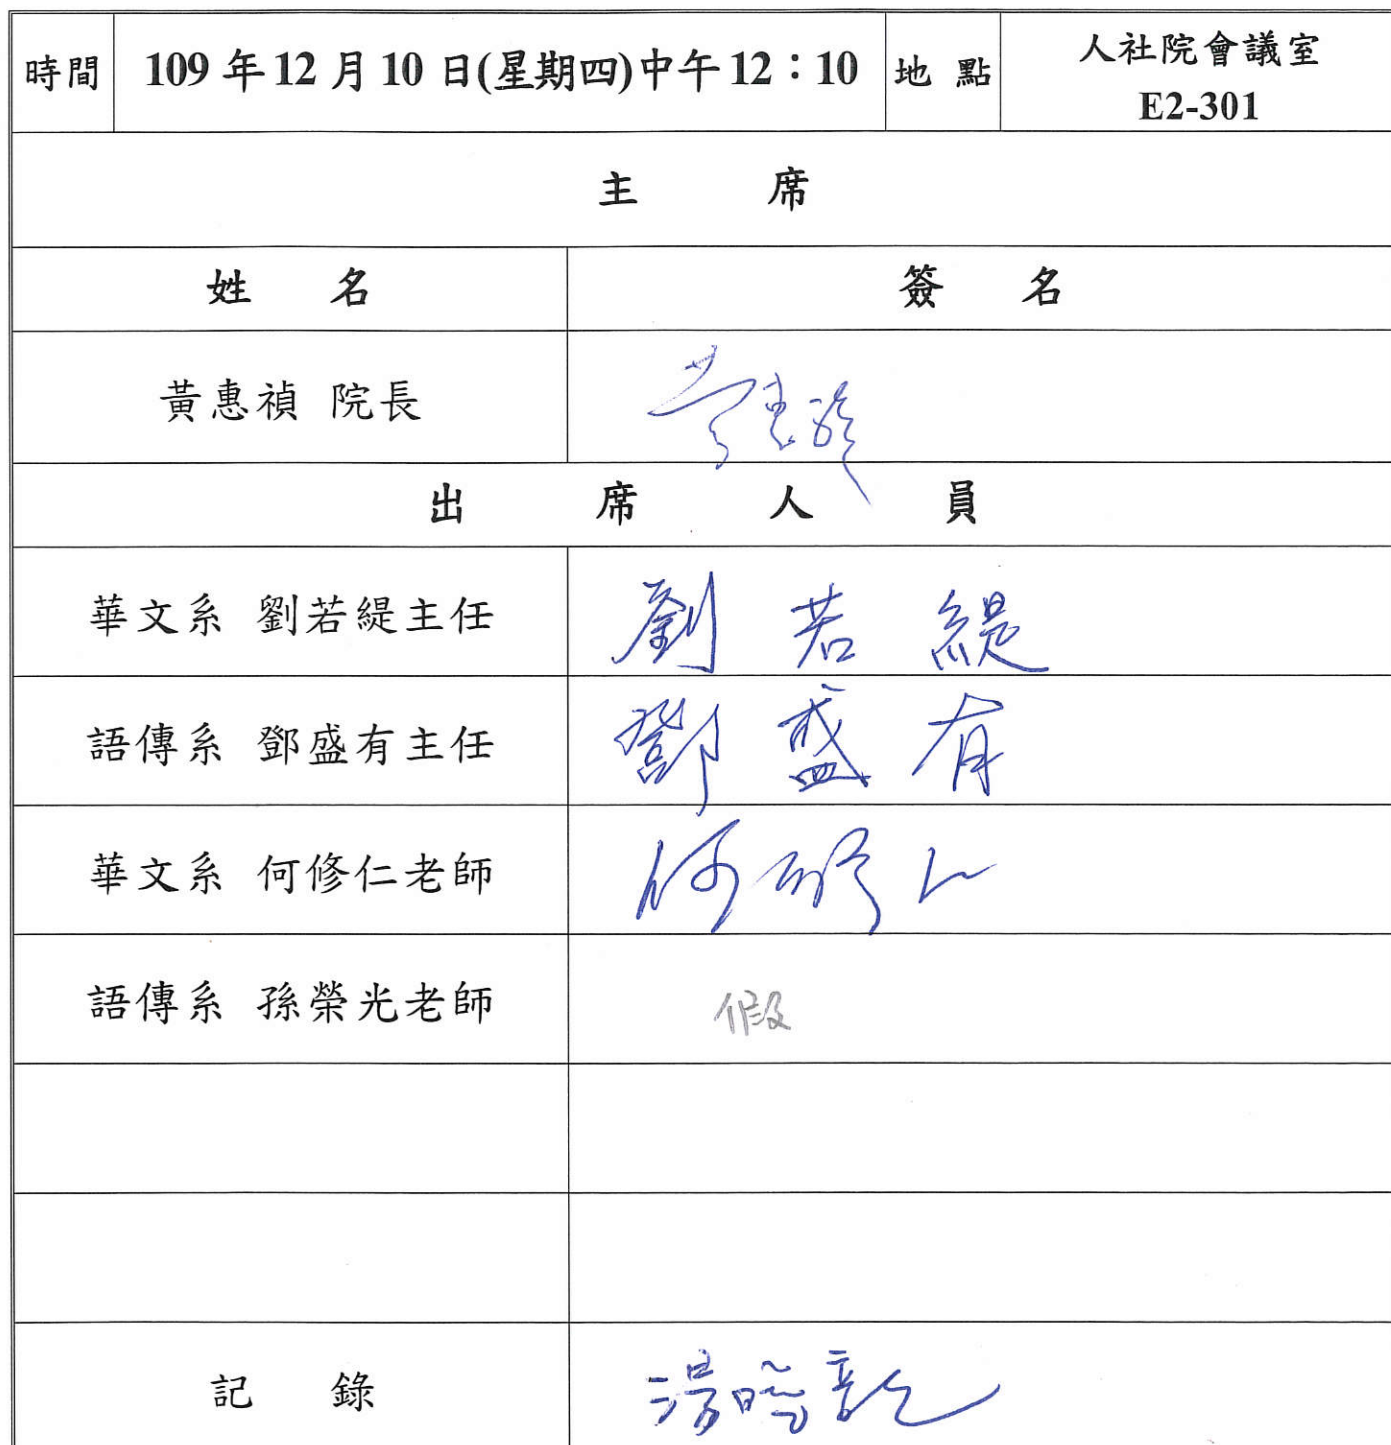 時間 109年12月10日(星期四)中午12：10 地點 人社院會議室
E2-301
主席
姓名 簽名
黃惠禎 院長 黃惠禎
出席人員
華文系 劉若緹主任 劉若緹
語傳系 鄧盛有主任 鄧盛有
華文系 何修仁老師 何修仁
語傳系 孫榮光老師 假
記錄